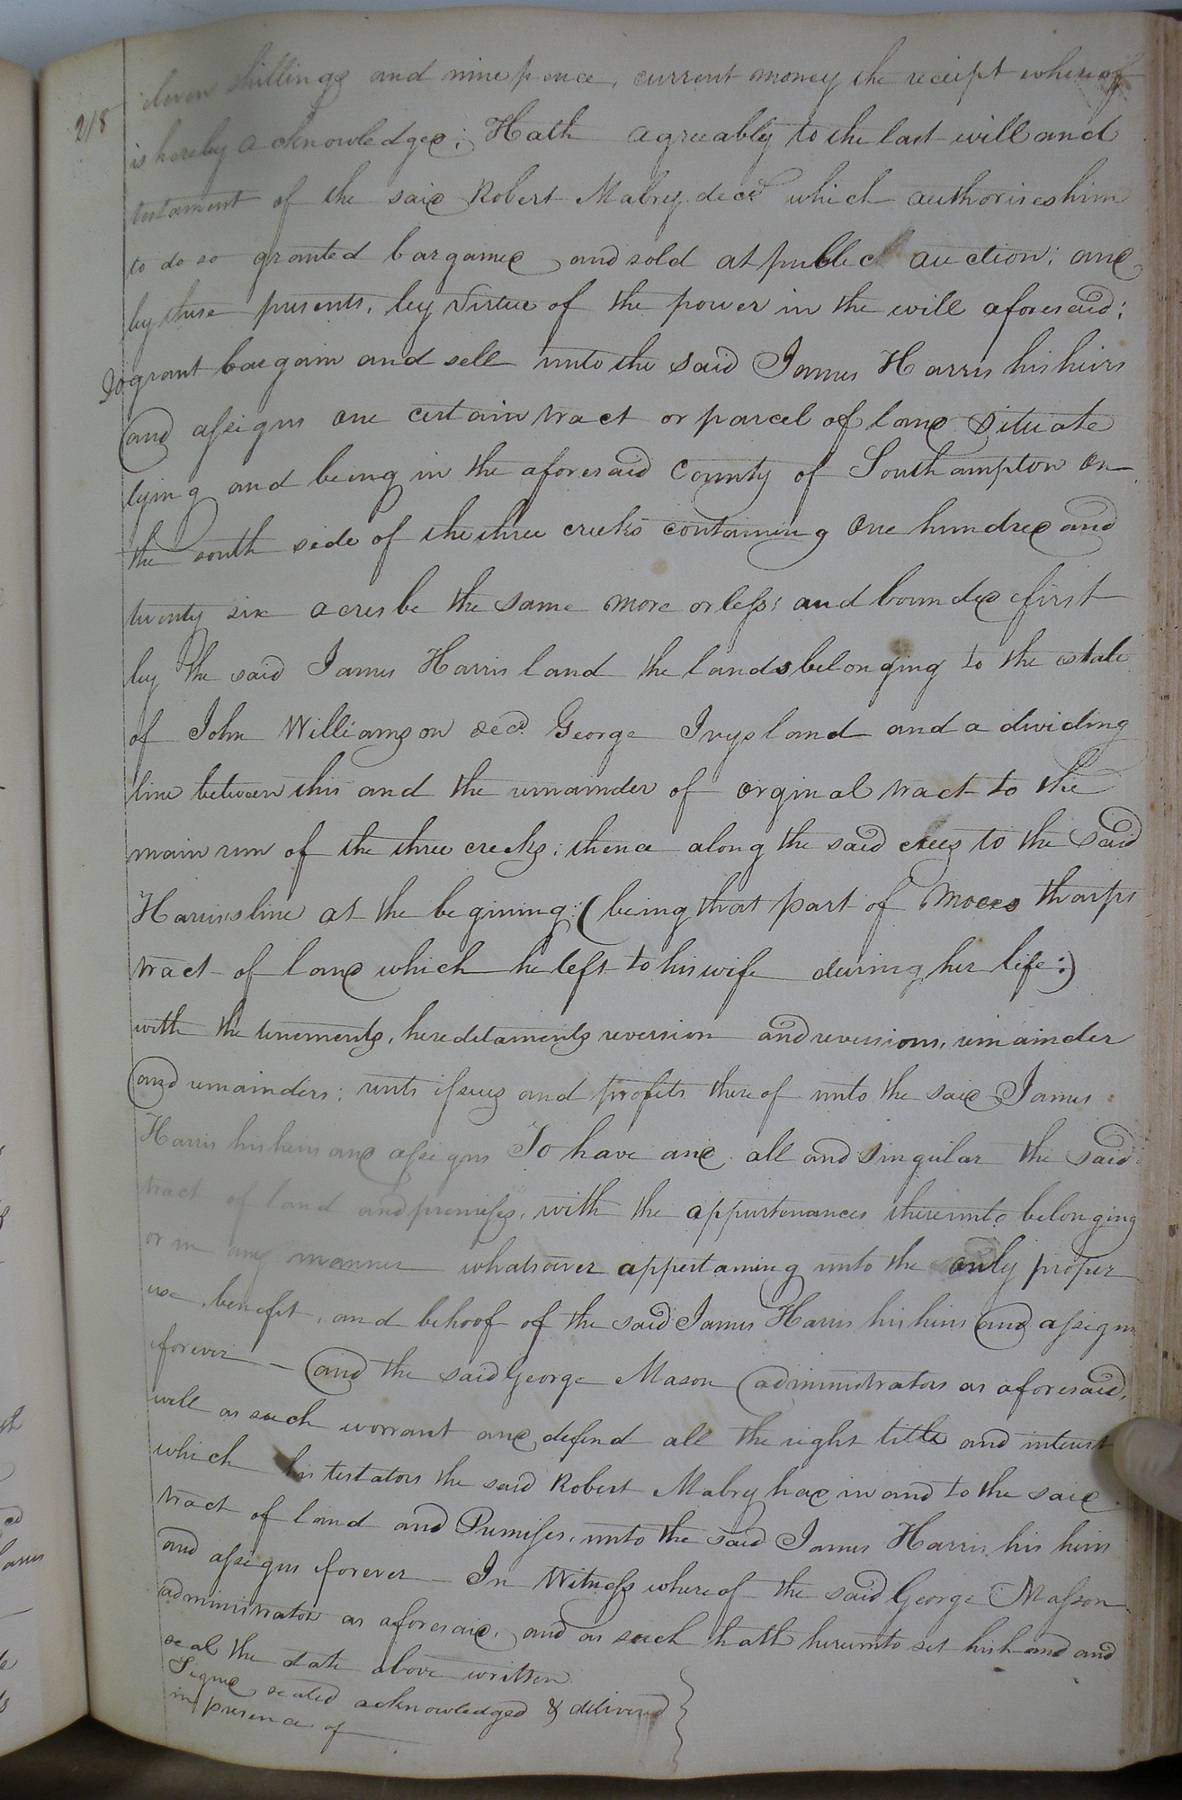 218
eleven shillings and nine pence, current money the receipt whereof
is hereby acknowledged; Hath agreeably to the last will and
testament of the said Robert Mabry decd which authorises him
to do so granted bargained and sold at publec auction; and
by these presents, by virtue of the power in the will aforesaid;
Do grant bargain and sell unto the said James Harris his heirs
and assigns one certain tract or parcel of land Situate
lying and being in the aforesaid County of Southampton on
the south side of the three creeks containing One hundred and
twenty six acres be the same more or less; and bounded first
by the said James Harris land the lands belonging to the estate
of John Williamson decd. George Ivys land and a dividing
line between this and the remainder of orginal tract to the
main run of the three creeks; thence along the said to the said
Harris's line at the begining: (being that part of Moses tharps
tract of land which he left to his wife during her life:)
with the tenements, hereditaments reversion and reversions, remainder
and remainders; rents issues and profits thereof unto the said James
Harris his heirs and assigns To have and all and singular the said
tract of land and premises, with the appurtenances thereunto belonging
or in any manner whatsoever appertaining unto the only proper
use, benefit, and behoof of the said James Harris his heirs and assigns
forever — and the said George Mason administrator as aforesaid,
will as such warrant and defend all the right title and interest
which his testators the said Robert Mabry had in and to the said
tract of land and Premises, unto the said James Harris his heirs
and assigns forever — In Witness whereof the said George Masson
administrator as aforesaid, and as such hath hereunto set his hand and
seal the date above written
Signed sealed acknowledged & delivered
in presence of